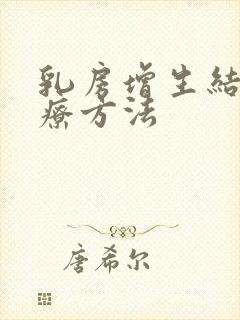 乳房增生結
療方法
唐希尔